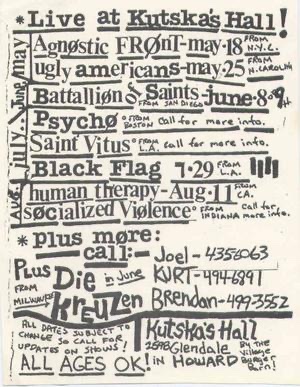 *Live at Kutska's Hall!
Agnøstic FRØnT-may-18 FROM N.Y.C.
ugly americans-may-25 FROM N.CAROLINA
Battalliøn of Saints-june-8&9TH FROM SAN DIEGO
Psychø FROM BOSTON Call for more info.
Saint Vitus FROM L.A. call for more info.
Black Flag 7-29 FROM L.A.
human therapy-Aug-11 FROM CA.
søcialized Viølence FROM INDIANA Call for more info.
AUG. July. June/may
*plus møre:
call:- Joel-4356063
KURT-494-6891
Brendan-499-3552
Plus Die in June
FROM MILWAUKEE KREUZen
ALL DATES SUBJECT TO
CHANGE SO CALL FOR
UPDATES ON SHOWS!
ALL AGES OK!
Kutska's Hall
1598 Glendale BY THE Village Burger Barn!
in HOWARD